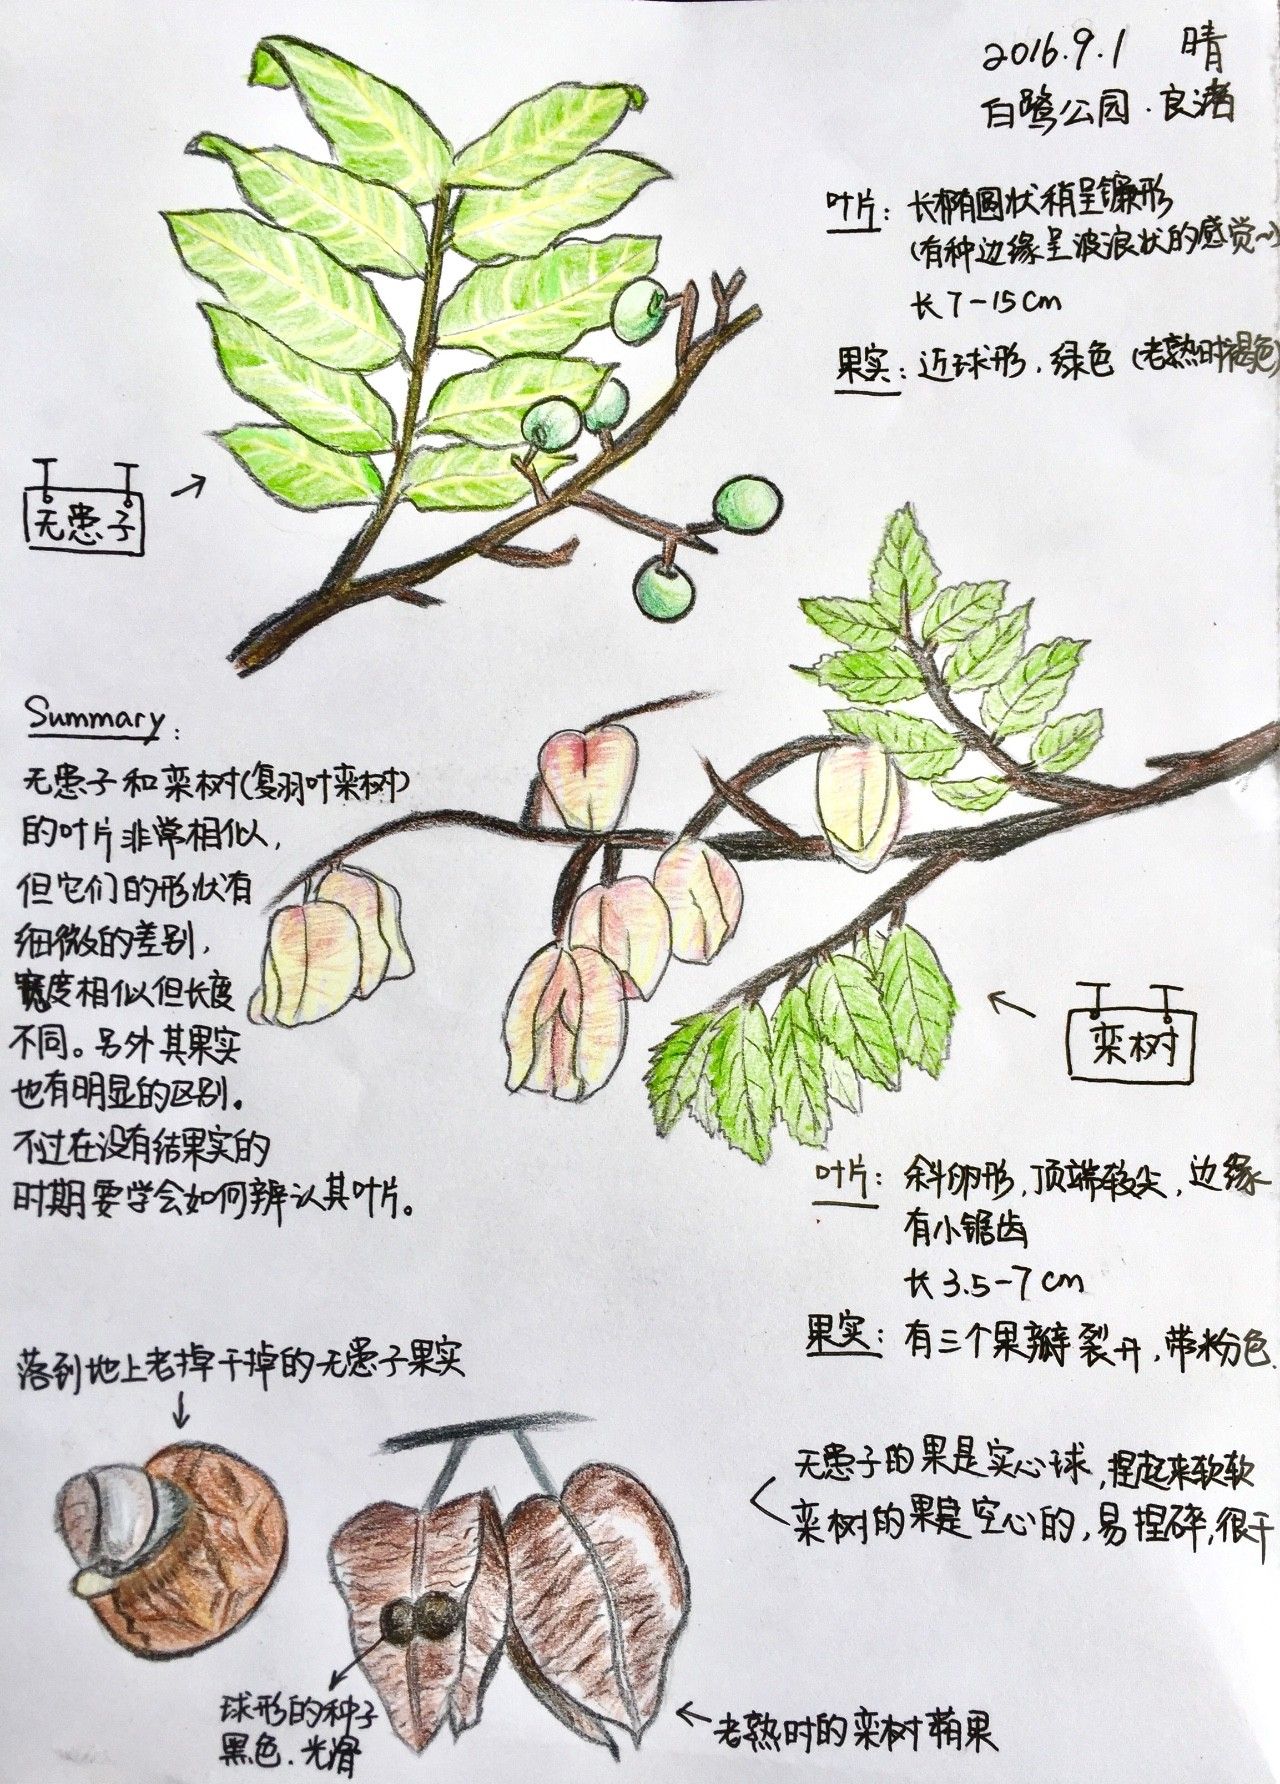 2016.9.1 晴
白鹭公园·良渚
叶片：长椭圆状稍呈镰形
(有种边缘呈波浪状的感觉~)
长7-15cm
果实：近球形，绿色 (老熟时褐色)
无患子
Summary:
无患子和栾树(复羽叶栾树)
的叶片非常相似，
但它们的形状有
细微的差别，
宽度相似但长度
不同。另外其果实
也有明显的区别。
不过在没有结果实的
时期要学会如何辨认其叶片。
栾树
叶片：斜卵形，顶端较尖，边缘
有小锯齿
长3.5-7cm
果实：有三个果瓣裂开，带粉色.
落到地上老掉干掉的无患子果实
无患子的果是实心球，捏起来软软
栾树的果是空心的，易捏碎，很干
球形的种子
黑色.光滑
老熟时的栾树蒴果